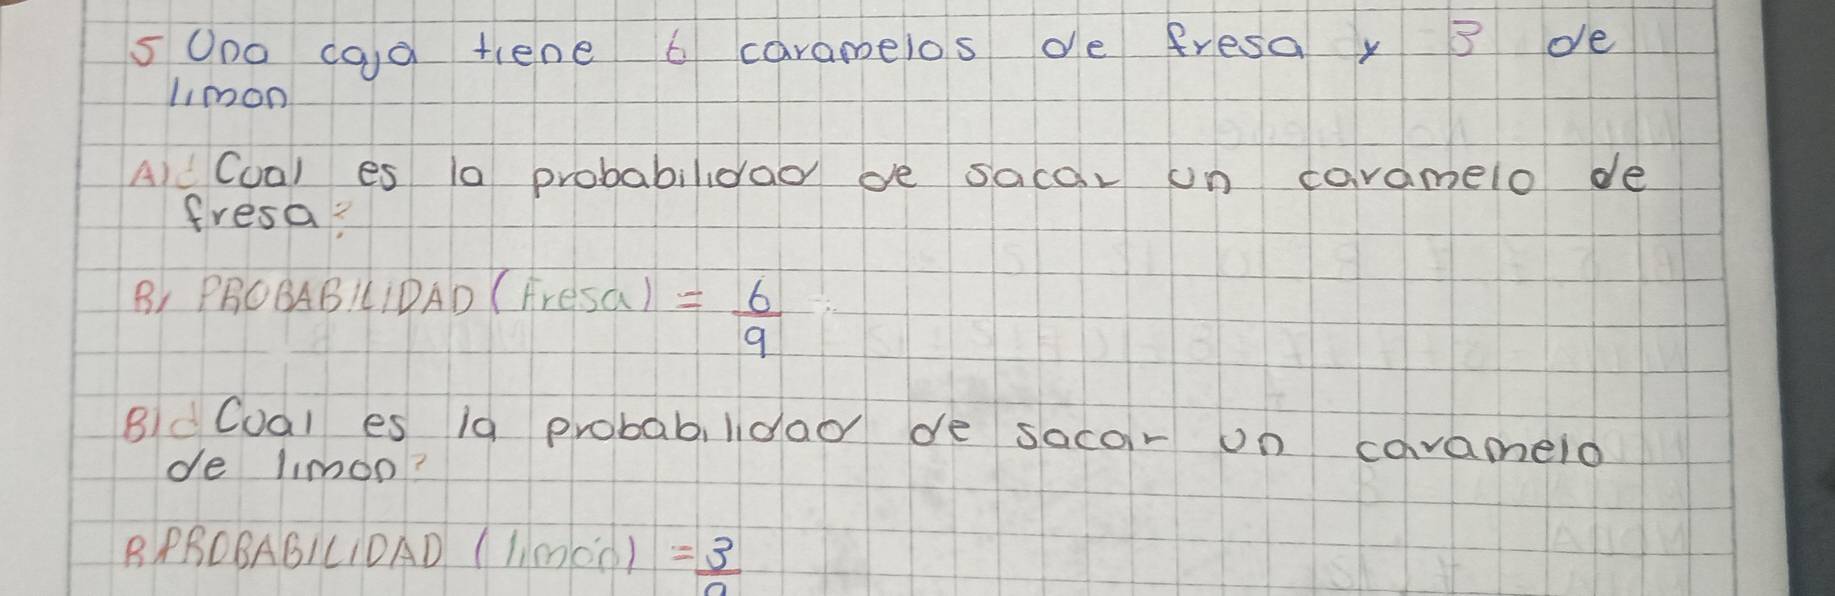 5 Una caja tiene 6 caramelos de fresa y 3 de
limon
A) ¿Cual es la probabilidad de sacar un caramelo de
fresa?
R/ PROBABILIDAD (Fresa) = 6/9
B) ¿Cual es la probabilidad de sacar un caramelo
de limon?
R/ PROBABILIDAD (limón) = 3/9